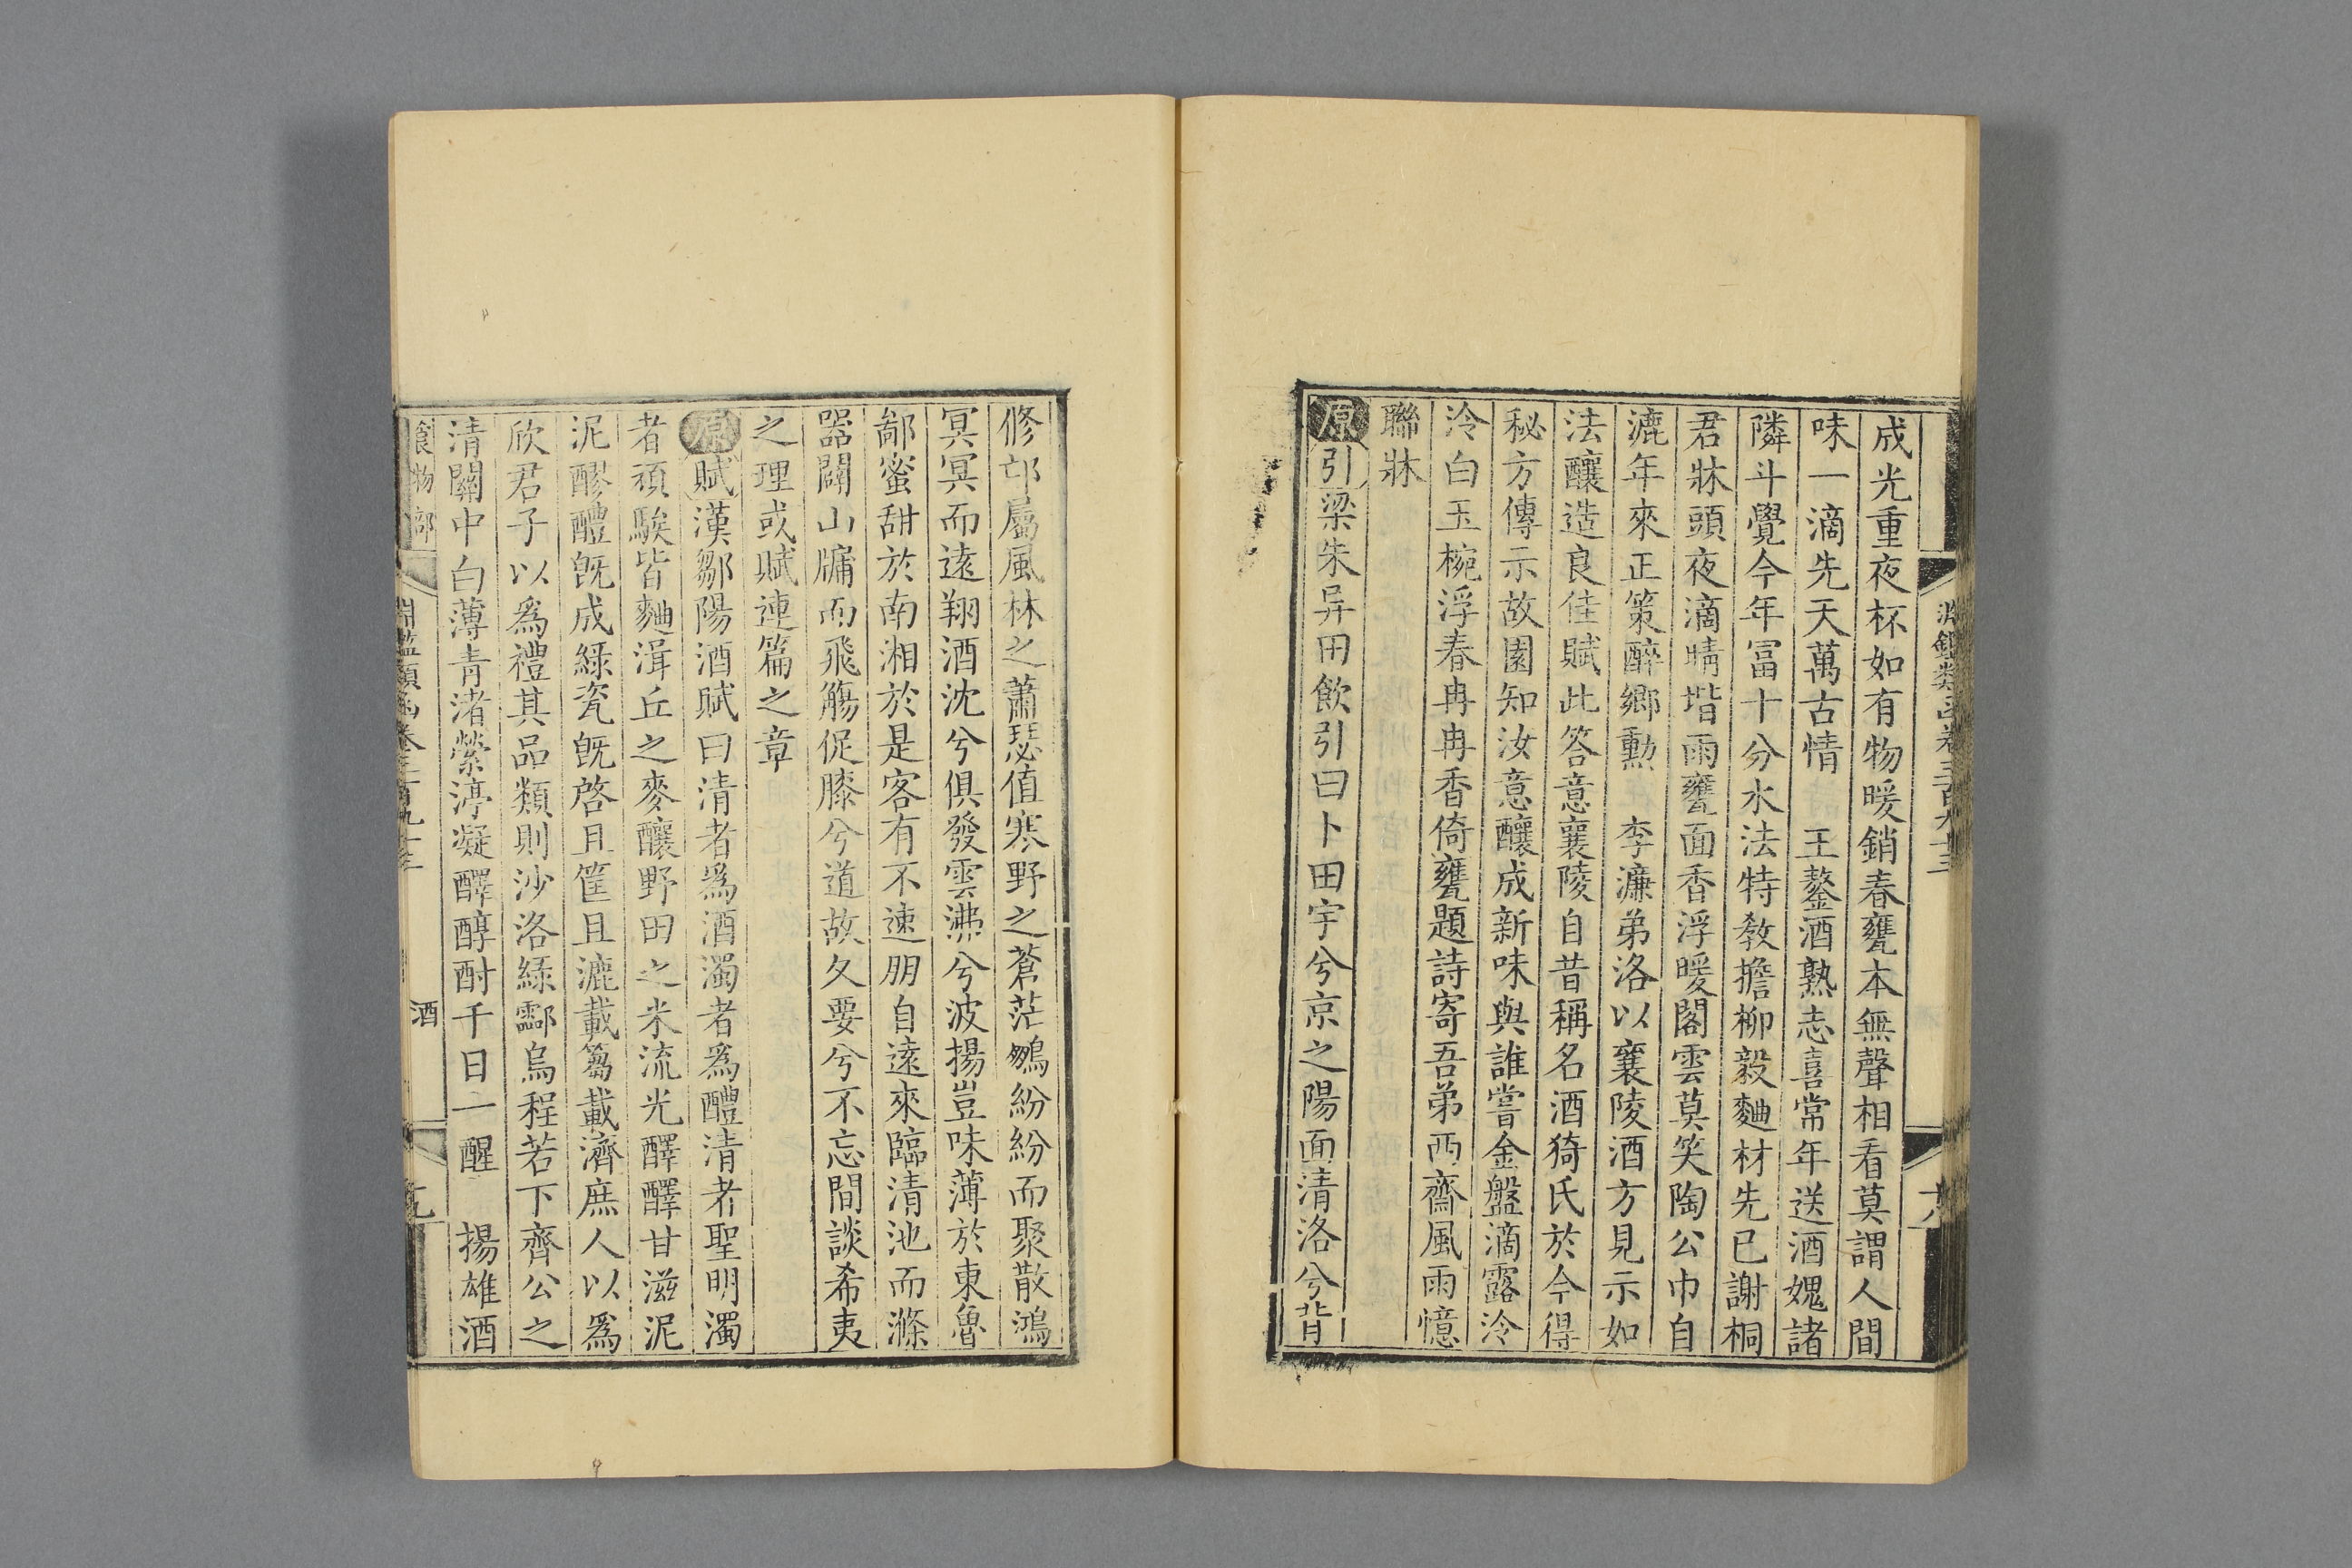 成光重夜杯如有物暖銷春甕本無聲相看莫謂人間
味一滴先天萬古情　王鏊酒熟志喜常年送酒媿諸
隣斗覺今年富十分水法特教擔柳毅麯材先已謝桐
君牀頭夜滴晴堦雨甕面香浮暖閣雲莫笑陶公巾自
漉年來正策醉鄉勲　李濂弟洛以襄陵酒方見示如
法釀造良佳賦此答意襄陵自昔稱名酒猗氏於今得
秘方傳示故園知汝意釀成新味與誰嘗金盤滴露泠
泠白玉椀浮春冉冉香倚甕題詩寄吾弟西齋風雨憶
聯牀
原引梁朱异田飲引曰卜田宇兮京之陽面清洛兮背
修邙屬風林之蕭瑟值寒野之蒼茫鵬紛紛而聚散鴻
冥冥而遠翔酒沈兮俱發雲沸兮波揚豈味薄於東魯
鄗蜜甜於南湘於是客有不速朋自遠來臨清池而滌
器闢山牖而飛觴促膝兮道故久要兮不忘間談希夷
之理或賦連篇之章
原賦漢鄒陽酒賦曰清者爲酒濁者爲醴清者聖明濁
者頑騃皆麯湒丘之麥釀野田之米流光醳醳甘滋泥
泥醪醴旣成綠瓷旣啓且筐且漉載篘載濟庶人以爲
欣君子以爲禮其品類則沙洛綠酃烏程若下齊公之
清關中白薄青渚縈渟凝醳醇酎千日一醒　揚雄酒
食物部
淵鑑類函卷三百九十三
酒
九